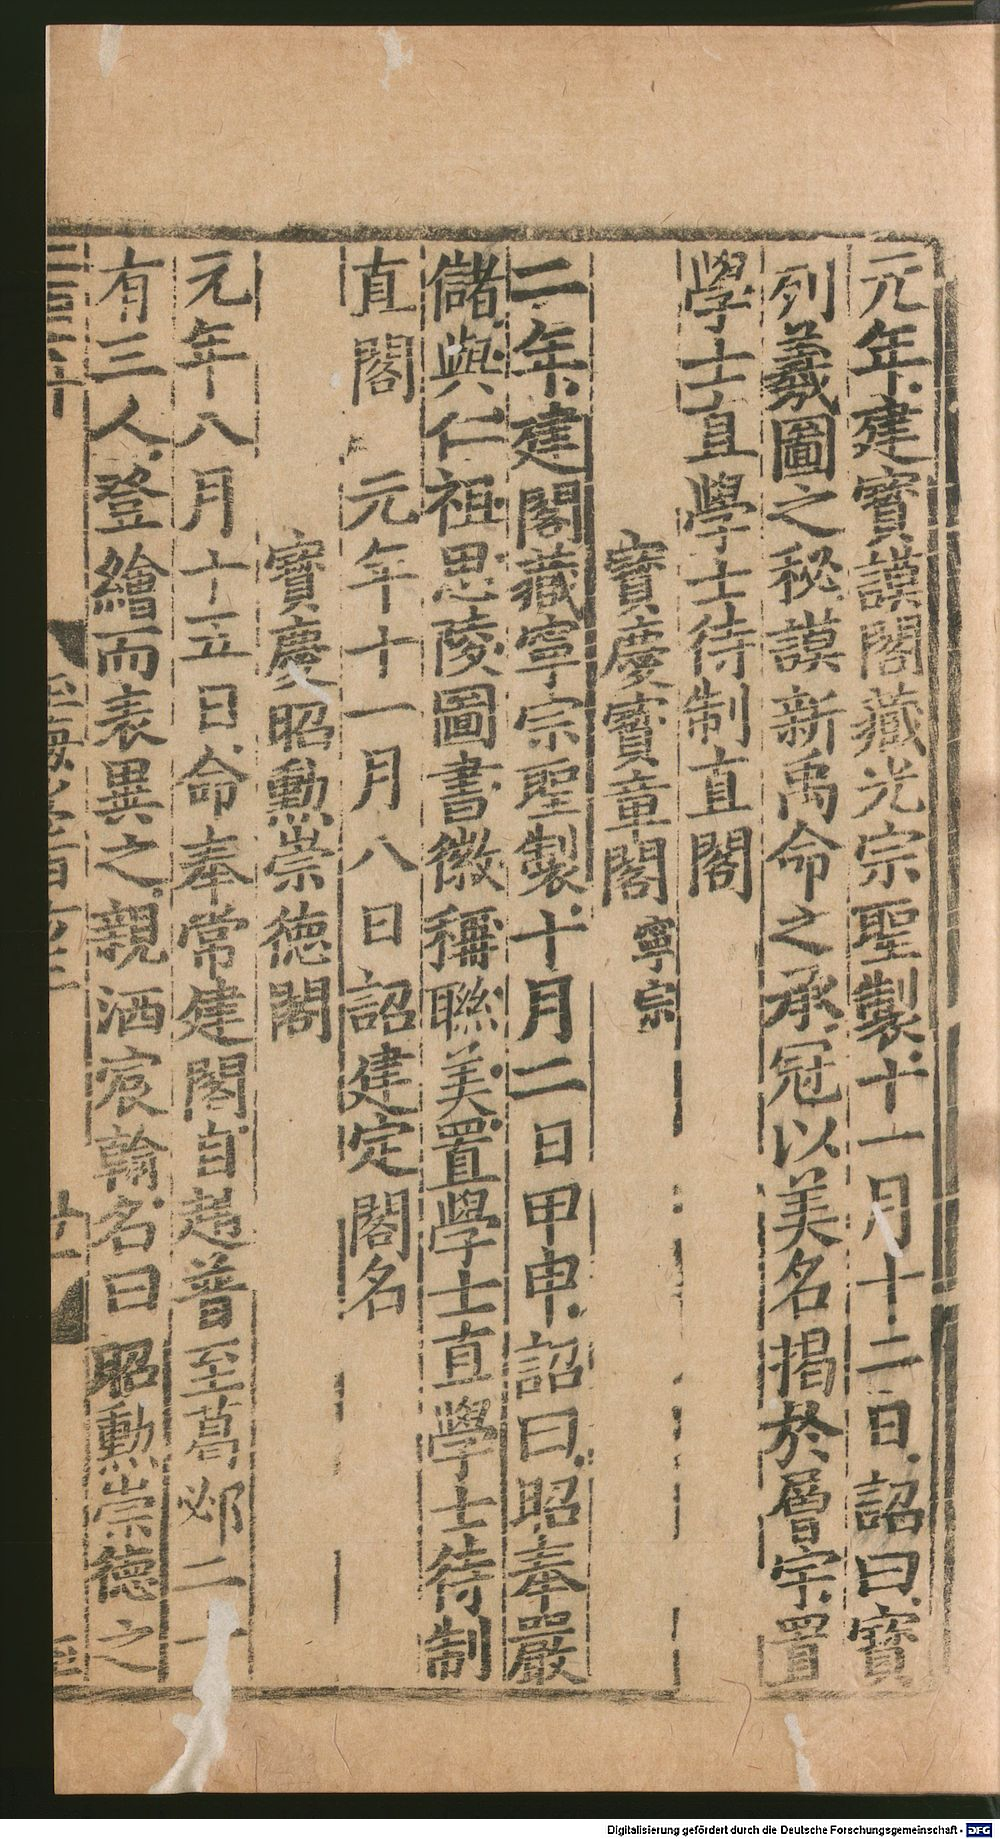 元年建寶謨閣藏光宗聖製十一月十二日詔曰寶
列羲圖之秘謨新禹命之承冠以美名揭於層宇置
學士直學士待制直閣
寶慶寳章閣 寧宗
二年建閣藏寧宗聖製十月二日甲申詔曰昭奉嚴
儲與仁祖思陵圖書徽稱聯美置學士直學士待制
直閣 元年十一月八日詔建定閣名
寶慶昭勳崇德閣
元年八月十五日命奉常建閣自趙普至葛邲二十
有三人登繪而表異之親洒宸翰名曰昭勳崇德之
Digitalisierung gefördert durch die Deutsche Forschungsgemeinschaft - DFG